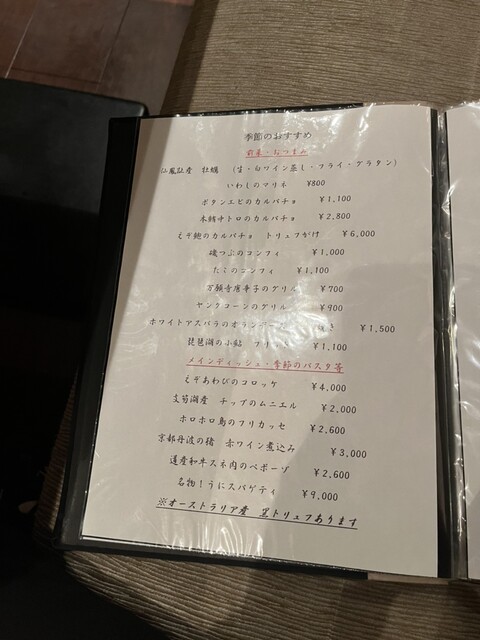 季節のおすすめ
前菜・おつまみ
仙鳳趾産 牡蠣 (生・白ワイン蒸し・フライ・グラタン)
いわしのマリネ ¥800
ボタンエビのカルパチョ ¥1,100
本鮪中トロのカルパチョ ¥2,800
えぞ鮑のカルパチョ トリュフがけ ¥6,000
磯つぶのコンフィ ¥1,000
たこのコンフィ ¥1,100
万願寺唐辛子のグリル ¥700
ヤングコーンのグリル ¥900
ホワイトアスパラのオランデーズ 焼き ¥1,500
琵琶湖の小鮎 フリット ¥1,100
メインディッシュ・季節のパスタ等
えぞあわびのコロッケ ¥4,000
支笏湖産 チップのムニエル ¥2,000
ホロホロ鳥のフリカッセ ¥2,600
京都丹波の猪 赤ワイン煮込み ¥3,000
道産和牛スネ肉のペポーゾ ¥2,600
名物!うにスパゲティ ¥9,000
※オーストラリア産 黒トリュフあります